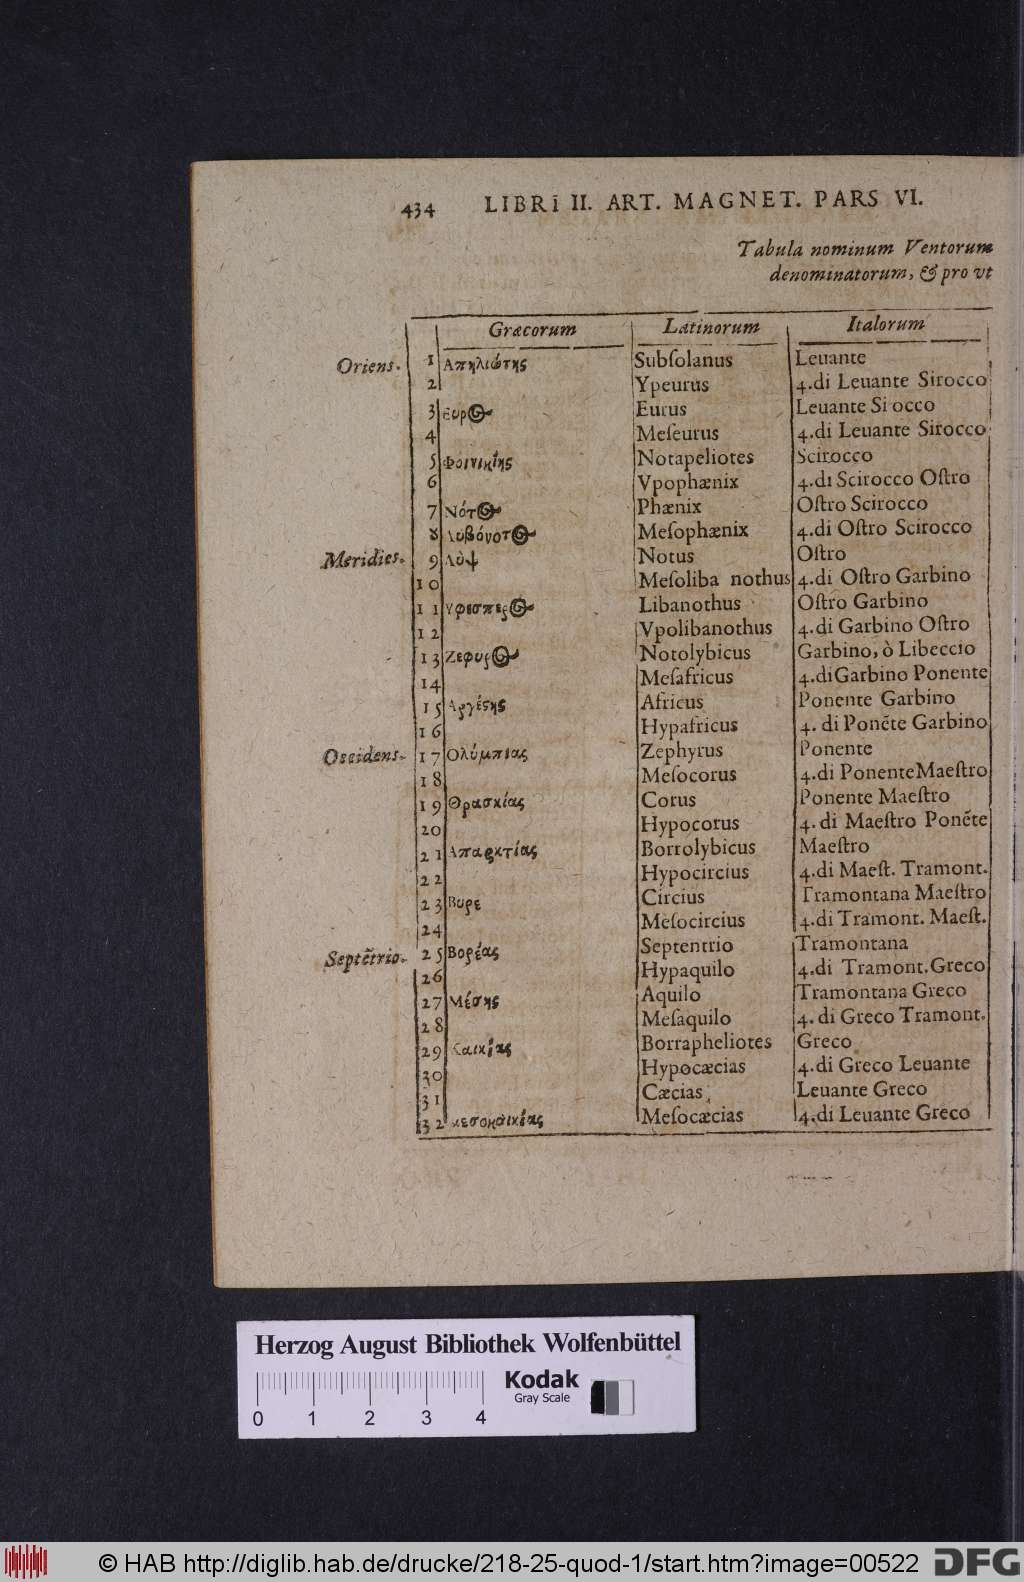 434 LIBRI II. ART. MAGNET. PARS VI.
Tabula nominum Ventorum
denominatorum, & pro vt
Græcorum Latinorum Italorum
Oriens. 1 Απηλιώτης Subſolanus Leuante
2 Ypeurus 4.di Leuante Sirocco
3 Ευρος Eurus Leuante Si occo
4 Meſeurus 4.di Leuante Sirocco
5 Φοινικίης Notapeliotes Scirocco
6 Vpophænix 4.di Scirocco Oſtro
7 Νότος Phænix Oſtro Scirocco
8 Λυβόνοτος Meſophænix 4.di Oſtro Scirocco
Meridies. 9 Λὺψ Notus Oſtro
10 Meſoliba nothus 4.di Oſtro Garbino
11 Υφεσπερος Libanothus Oſtro Garbino
12 Vpolibanothus 4.di Garbino Oſtro
13 Ζεφυρος Notolybicus Garbino, ò Libeccio
14 Meſafricus 4.di Garbino Ponente
15 Αργέςης Africus Ponente Garbino
16 Hypafricus 4. di Ponẽte Garbino
Occidens. 17 Ολύμπιας Zephyrus Ponente
18 Meſocorus 4.di Ponente Maeſtro
19 Θρασκίας Corus Ponente Maeſtro
20 Hypocorus 4. di Maeſtro Ponẽte
21 Απαρκτίας Borrolybicus Maeſtro
22 Hypocircius 4.di Maeſt. Tramont.
23 Βυρε Circius Tramontana Maeſtro
24 Meſocircius 4.di Tramont. Maeſt.
Septẽtrio. 25 Βορέας Septentrio Tramontana
26 Hypaquilo 4.di Tramont. Greco
27 Μέσης Aquilo Tramontana Greco
28 Meſaquilo 4. di Greco Tramont.
29 Καικίας Borrapheliotes Greco
30 Hypocæcias 4.di Greco Leuante
31 Cæcias Leuante Greco
32 Μεσοκαικίας Meſocæcias 4.di Leuante Greco
Herzog August Bibliothek Wolfenbüttel
Kodak
Gray Scale
0 1 2 3 4
© HAB http://diglib.hab.de/drucke/218-25-quod-1/start.htm?image=00522
DFG